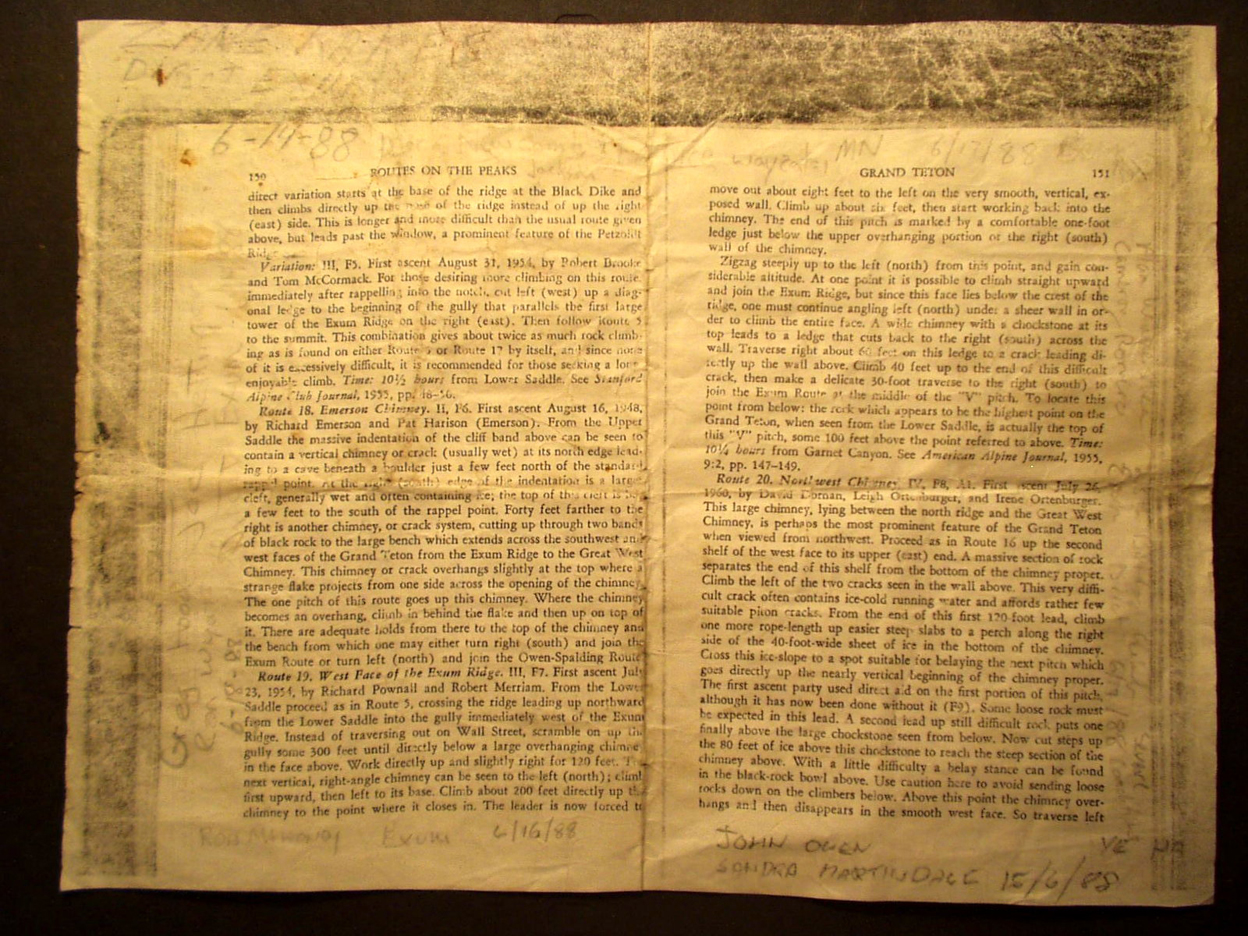 6-14-88
MN 6/17/88
150 ROUTES ON THE PEAKS
direct variation starts at the base of the ridge at the Black Dike and
then climbs directly up the of the ridge instead of up the right
(east) side. This is longer and more difficult than the usual route given
above, but leads past the window, a prominent feature of the Petzoldt
Ridge
Variation: III, F5. First ascent August 31, 1954, by Robert Brooke
and Tom McCormack. For those desiring more climbing on this route,
immediately after rappelling into the notch, cut left (west) up a diag-
onal ledge to the beginning of the gully that parallels the first large
tower of the Exum Ridge on the right (east). Then follow Route 5
to the summit. This combination gives about twice as much rock climb-
ing as is found on either Route 5 or Route 17 by itself, and since none
of it is excessively difficult, it is recommended for those seeking a long
enjoyable climb. Time: 10½ hours from Lower Saddle. See Stanford
Alpine Club Journal, 1955, pp.
Route 18. Emerson Chimney. II, F6. First ascent August 16, 1948,
by Richard Emerson and Pat Harison (Emerson). From the Upper
Saddle the massive indentation of the cliff band above can be seen to
contain a vertical chimney or crack (usually wet) at its north edge lead-
ing to a cave beneath a boulder just a few feet north of the standard
rappel point. At the right (south) edge of the indentation is a large
cleft, generally wet and often containing ice; the top of this cleft is but
a few feet to the south of the rappel point. Forty feet farther to the
right is another chimney, or crack system, cutting up through two bands
of black rock to the large bench which extends across the southwest and
west faces of the Grand Teton from the Exum Ridge to the Great West
Chimney. This chimney or crack overhangs slightly at the top where a
strange flake projects from one side across the opening of the chimney.
The one pitch of this route goes up this chimney. Where the chimney
becomes an overhang, climb in behind the flake and then up on top of
it. There are adequate holds from there to the top of the chimney and
the bench from which one may either turn right (south) and join the
Exum Route or turn left (north) and join the Owen-Spalding Route
Route 19. West Face of the Exum Ridge. III, F7. First ascent July
23, 1954, by Richard Pownall and Robert Merriam. From the Lower
Saddle proceed as in Route 5, crossing the ridge leading up northward
from the Lower Saddle into the gully immediately west of the Exum
Ridge. Instead of traversing out on Wall Street, scramble on up the
gully some 300 feet until directly below a large overhanging chimney
in the face above. Work directly up and slightly right for 120 feet. The
next vertical, right-angle chimney can be seen to the left (north); climb
first upward, then left to its base. Climb about 200 feet directly up the
chimney to the point where it closes in. The leader is now forced to
Exum 6/16/88
GRAND TETON 151
move out about eight feet to the left on the very smooth, vertical, ex-
posed wall. Climb up about six feet, then start working back into the
chimney. The end of this pitch is marked by a comfortable one-foot
ledge just below the upper overhanging portion of the right (south)
wall of the chimney.
Zigzag steeply up to the left (north) from this point, and gain con-
siderable altitude. At one point it is possible to climb straight upward
and join the Exum Ridge, but since this face lies below the crest of the
ridge, one must continue angling left (north) under a sheer wall in or-
der to climb the entire face. A wide chimney with a chockstone at its
top leads to a ledge that cuts back to the right (south) across the
wall. Traverse right about 60 feet on this ledge to a crack leading di-
rectly up the wall above. Climb 40 feet up to the end of this difficult
crack, then make a delicate 30-foot traverse to the right (south) to
join the Exum Route at the middle of the "V" pitch. To locate this
point from below: the rock which appears to be the highest point on the
Grand Teton, when seen from the Lower Saddle, is actually the top of
this "V" pitch, some 100 feet above the point referred to above. Time:
10¼ hours from Garnet Canyon. See American Alpine Journal, 1955,
9:2, pp. 147-149.
Route 20. Northwest Chimney. IV, F8, A1. First ascent July 26,
1960, by David Dornan, Leigh Ortenburger, and Irene Ortenburger.
This large chimney, lying between the north ridge and the Great West
Chimney, is perhaps the most prominent feature of the Grand Teton
when viewed from northwest. Proceed as in Route 16 up the second
shelf of the west face to its upper (east) end. A massive section of rock
separates the end of this shelf from the bottom of the chimney proper.
Climb the left of the two cracks seen in the wall above. This very diffi-
cult crack often contains ice-cold running water and affords rather few
suitable piton cracks. From the end of this first 120-foot lead, climb
one more rope-length up easier steep slabs to a perch along the right
side of the 40-foot-wide sheet of ice in the bottom of the chimney.
Cross this ice-slope to a spot suitable for belaying the next pitch which
goes directly up the nearly vertical beginning of the chimney proper.
The first ascent party used direct aid on the first portion of this pitch,
although it has now been done without it (F9). Some loose rock must
be expected in this lead. A second lead up still difficult rock puts one
finally above the large chockstone seen from below. Now cut steps up
the 80 feet of ice above this chockstone to reach the steep section of the
chimney above. With a little difficulty a belay stance can be found
in the black-rock bowl above. Use caution here to avoid sending loose
rocks down on the climbers below. Above this point the chimney over-
hangs and then disappears in the smooth west face. So traverse left
JOHN OWEN
SONDRA MARTINDALE 15/6/88